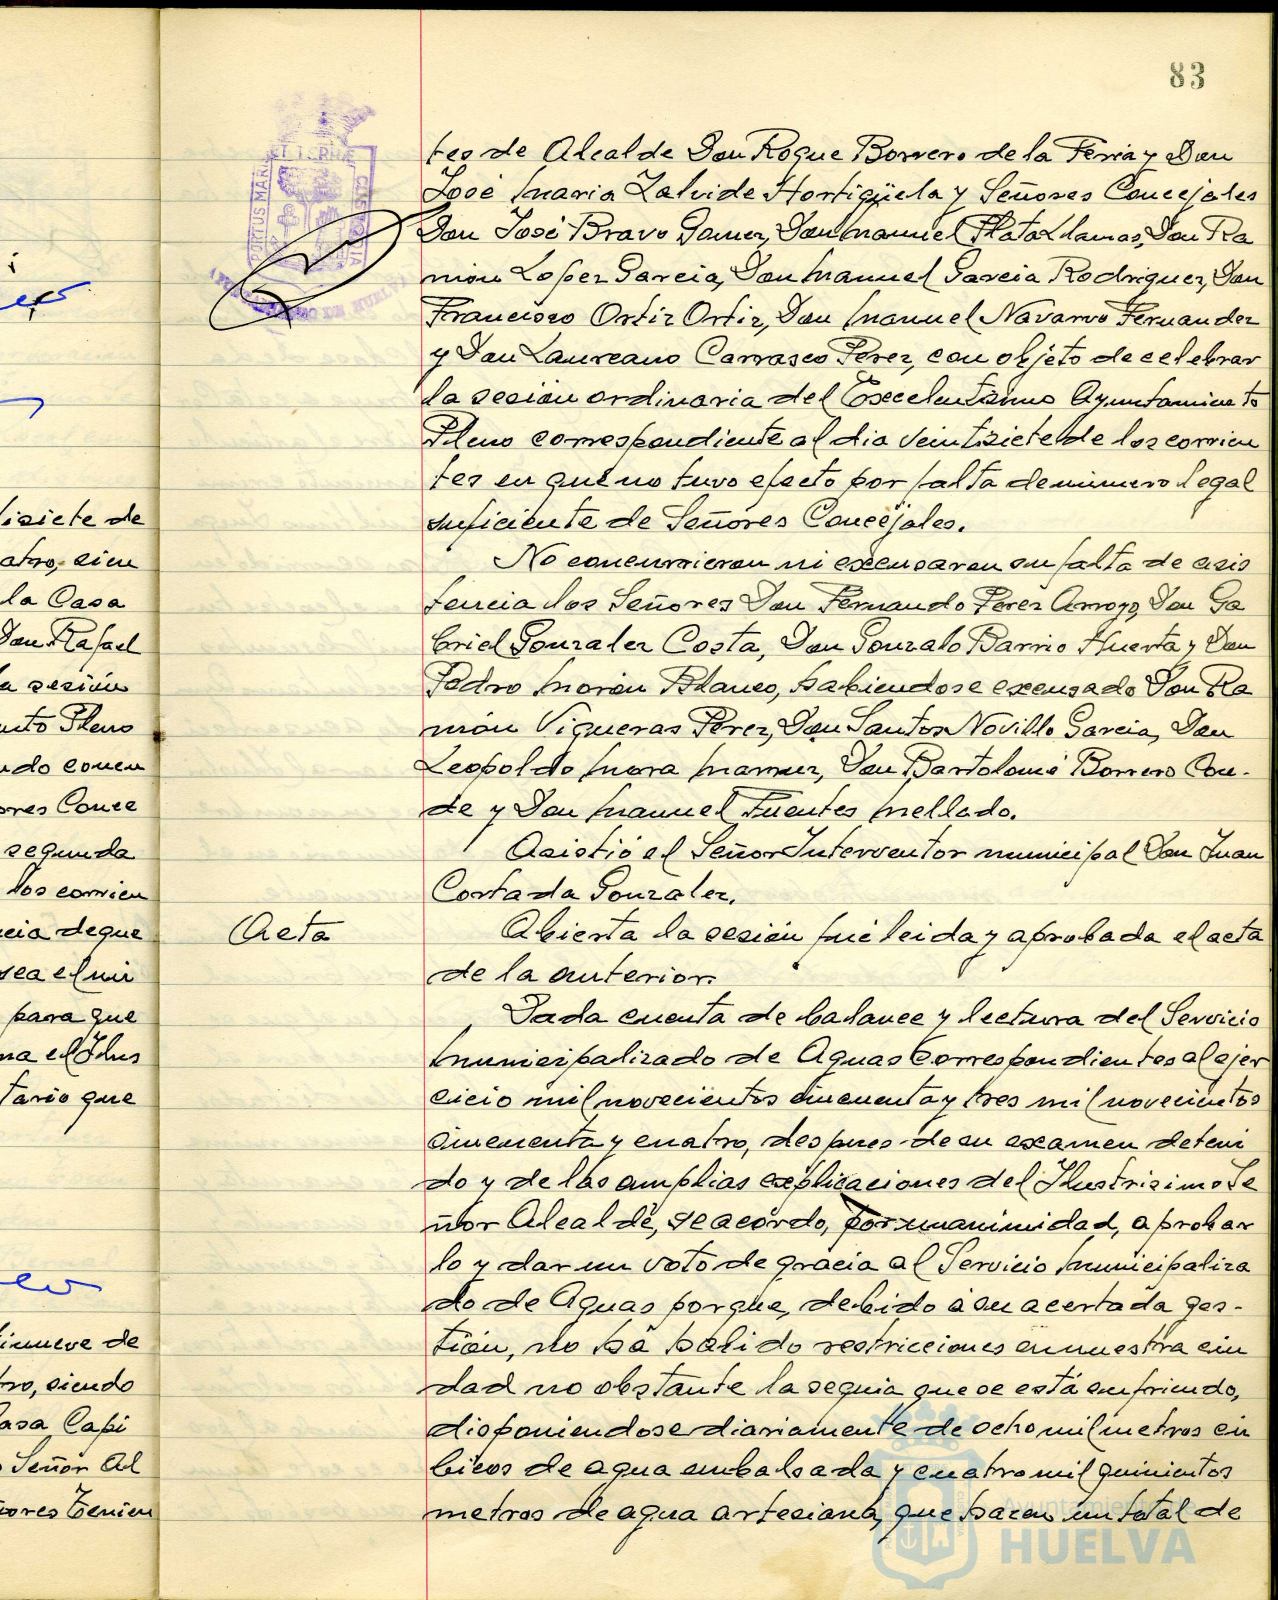 83
tes de Alcalde Don Roque Borrero de la Feria y Don
José Maria Zalvide Hortigüela y Señores Concejales
Don José Bravo Gomez, Don Manuel Plata Llamas, Don Ra
món Lopez Garcia, Don Manuel Garcia Rodriguez, Don
Francisco Ortiz Ortiz, Don Manuel Navarro Fernandez
y Don Laureano Carrasco Perez, con objeto de celebrar
la sesión ordinaria del Excelentísimo Ayuntamiento
Pleno correspondiente al dia veintisiete de los corrien
tes en que no tuvo efecto por falta de número legal
suficiente de Señores Concejales.
No concurrieron ni excusaron su falta de asis
tencia los Señores Don Fernando Perez Arroyo, Don Ga
briel Gonzalez Costa, Don Gonzalo Barrio Huerta y Don
Pedro Morón Blanco, habiendose excusado Don Ra
món Vigueras Perez, Don Santos Novillo Garcia, Don
Leopoldo Mora Don Bartolomé Borrero Con-
de y Don Manuel Fuentes Mellado.
Asistió el Señor Interventor municipal Don Juan
Cortada Gonzalez.
Acta
Abierta la sesión fué leida y aprobada el acta
de la anterior.
Dada cuenta de balance y lectura del Servicio
Municipalizado de Aguas correspondientes al ejer
cicio mil novecientos cincuenta y tres mil novecientos
cincuenta y cuatro, despues de su examen deteni
do y de las amplias explicaciones del Ilustrisimo Se
ñor Alcalde, se acordó, por unanimidad, aprobar
lo y dar un voto de gracia al Servicio Municipaliza
do de Aguas porque, debido a su acertada ges-
tión, no ha habido restricciones en nuestra ciu
dad no obstante la sequia que se está sufriendo,
disponiendose diariamente de ocho mil metros cú
bicos de agua embalsada y cuatro mil quinientos
metros de agua artesiana, que hacen un total de
tisiete de
atro, sien
la Casa
Don Rafael
a sesión
nto Pleno
ndo concu
ores Conce
segunda
los corrien
cia de que
sea el
para que
na el Ilus
tario que
inueve de
tro, siendo
Casa Capi
Señor Al
ores Tenien
PORTUS MARIS ET TERRAE CUSTODIA
Ayuntamiento de
HUELVA